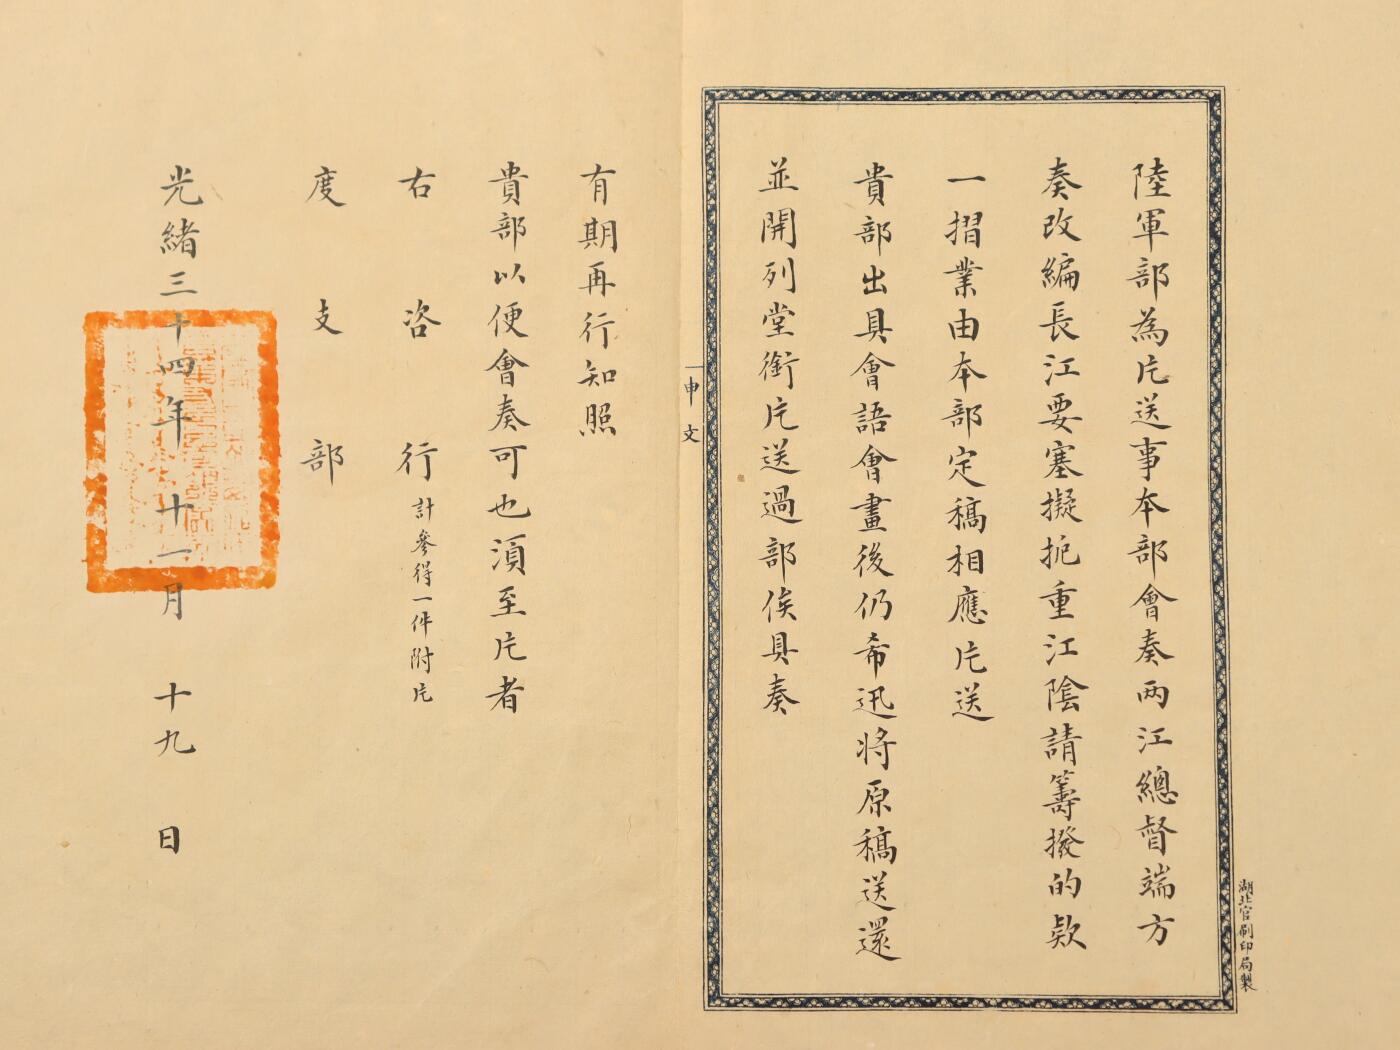 陸軍部為片送事本部會奏兩江總督端方
奏改編長江要塞擬扼重江陰請籌撥的欵
一摺業由本部定稿相應片送
貴部出具會語會畫後仍希迅將原稿送還
並開列堂銜片送過部俟具奏
有期再行知照
貴部以便會奏可也須至片者
右咨行計參得一件附片
度支部
光緒三十四年十一月十九日
申文
湖北官刷印局製